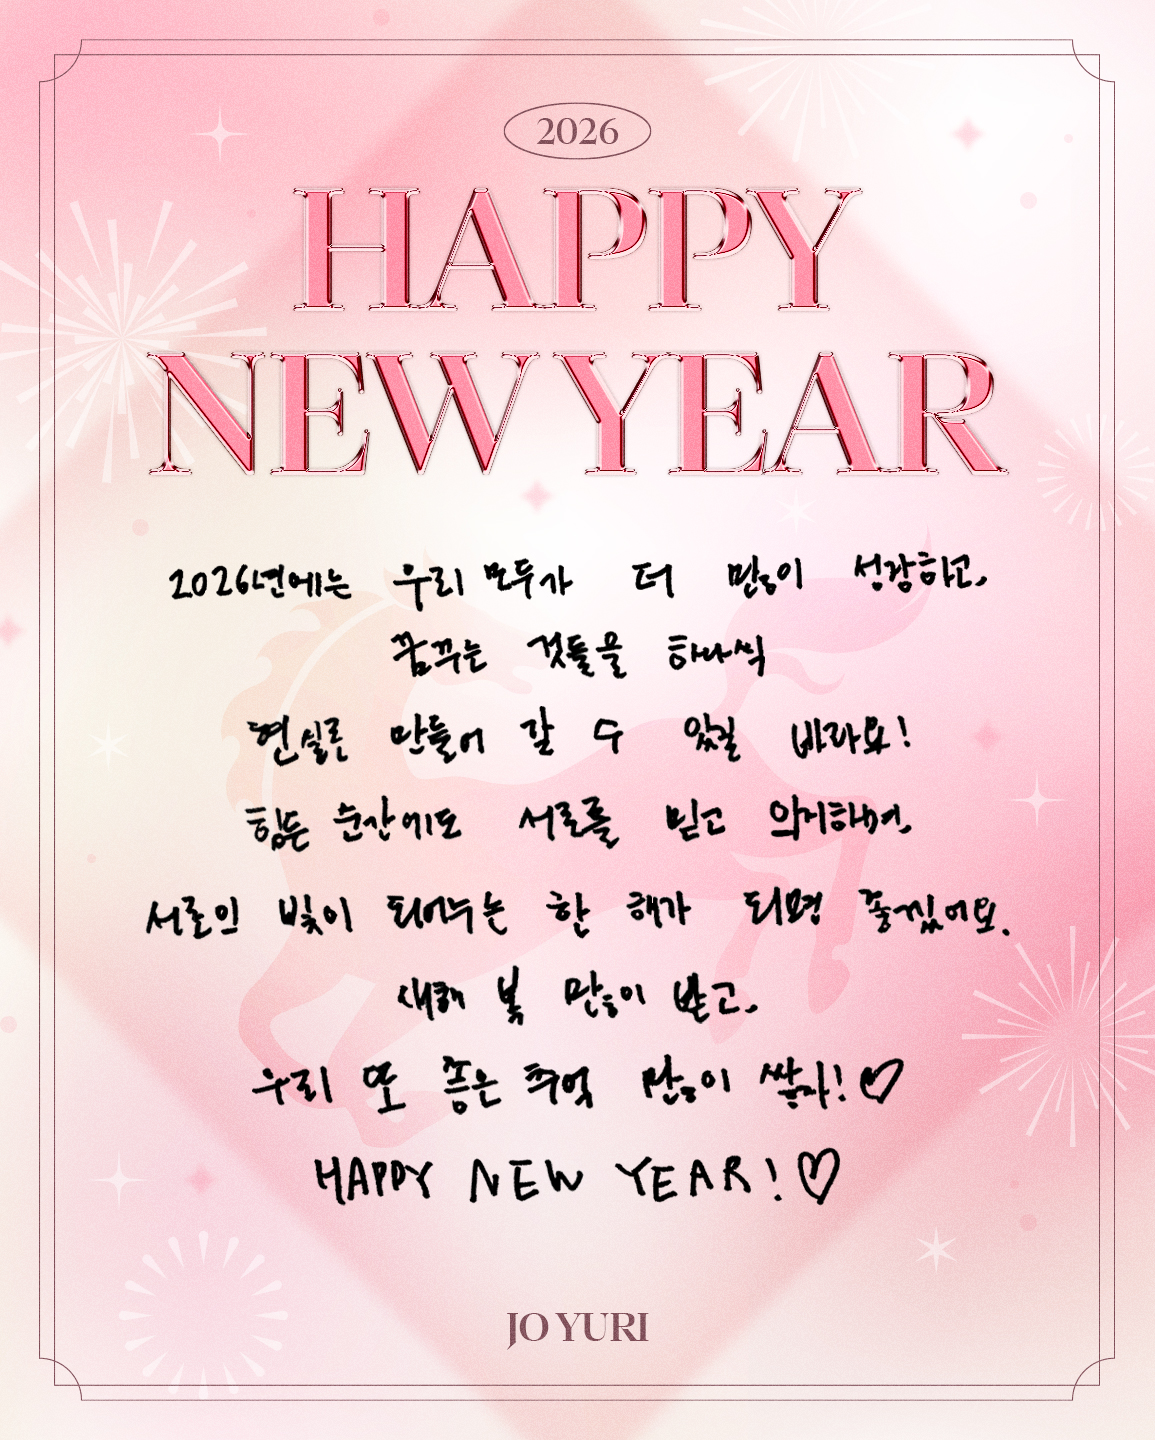 2026
HAPPY
NEW YEAR
2026년에는 우리 모두가 더 많이 성장하고,
꿈꾸는 것들을 하나씩
현실로 만들어 갈 수 있길 바라요!
힘든 순간에도 서로를 믿고 의지하며,
서로의 빛이 되어주는 한 해가 되면 좋겠어요.
새해 복 많이 받고,
우리 또 좋은 추억 많이 쌓자!♡
HAPPY NEW YEAR!♡
JO YURI